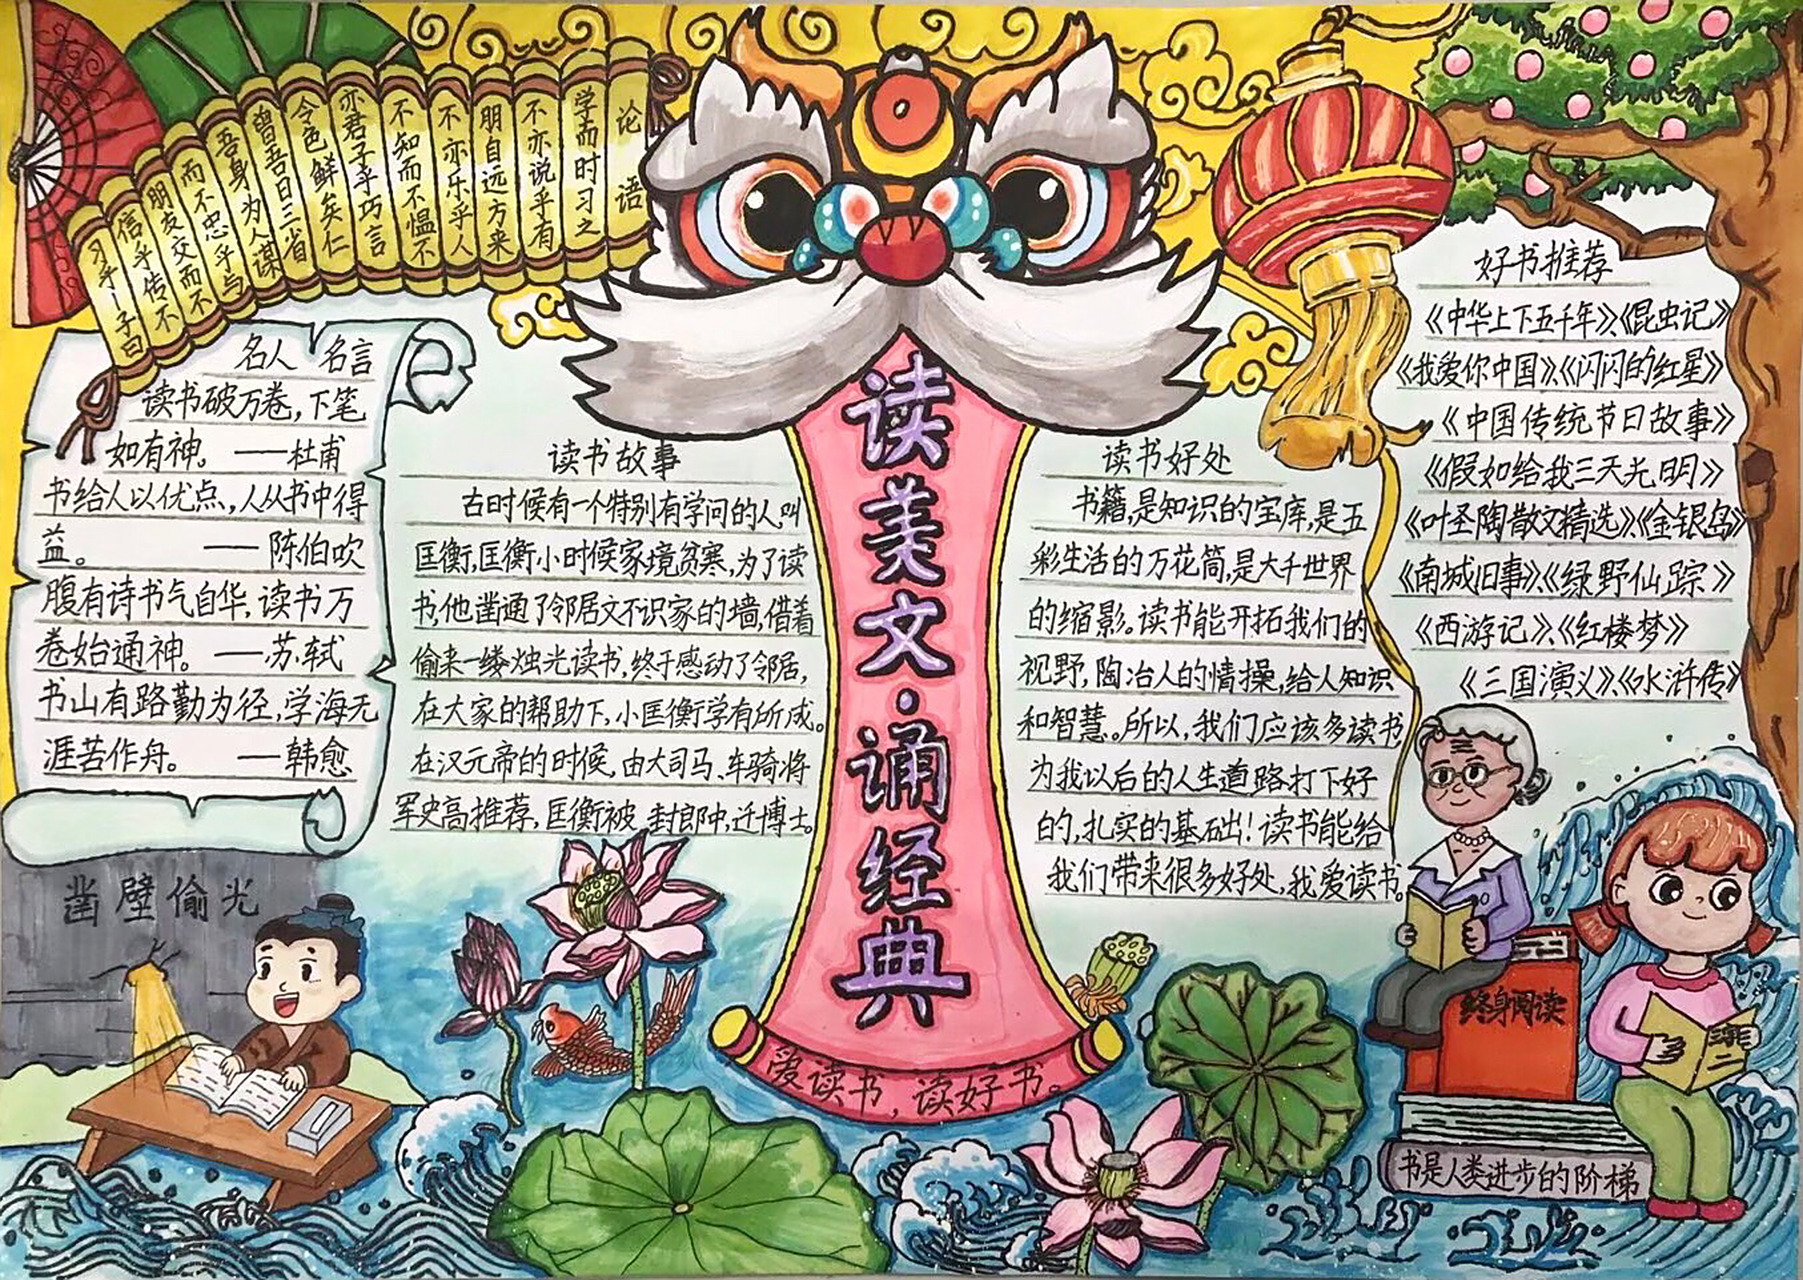 论语
学而时习之
不亦说乎有
朋自远方来
不亦乐乎人
不知而不愠不
亦君子乎巧言
令色鲜矣仁
曾吾日三省
吾身为人谋
而不忠乎与
朋友交而不
信乎传不
习乎子曰
名人名言
读书破万卷,下笔
如有神。——杜甫
书给人以优点,人从书中得
益。——陈伯吹
腹有诗书气自华,读书万
卷始通神。——苏轼
书山有路勤为径,学海无
涯苦作舟。——韩愈
凿壁偷光
读书故事
古时候有一个特别有学问的人,叫
匡衡,匡衡小时候家境贫寒,为了读
书,他凿通了邻居文不识家的墙,借着
偷来一缕烛光读书,终于感动了邻居,
在大家的帮助下,小匡衡学有所成。
在汉元帝的时候,由大司马、车骑将
军史高推荐,匡衡被封郎中,迁博士。
读美文·诵经典
爱读书,读好书。
读书好处
书籍,是知识的宝库,是五
彩生活的万花筒,是大千世界
的缩影。读书能开拓我们的
视野,陶冶人的情操,给人知识
和智慧。所以,我们应该多读书
为我以后的人生道路打下好
的,扎实的基础!读书能给
我们带来很多好处,我爱读书。
好书推荐
《中华上下五千年》、《昆虫记》
《我爱你中国》、《闪闪的红星》
《中国传统节日故事》
《假如给我三天光明》
《叶圣陶散文精选》、《金银岛》
《南城旧事》、《绿野仙踪》
《西游记》、《红楼梦》
《三国演义》、《水浒传》
终身阅读
书是人类进步的阶梯